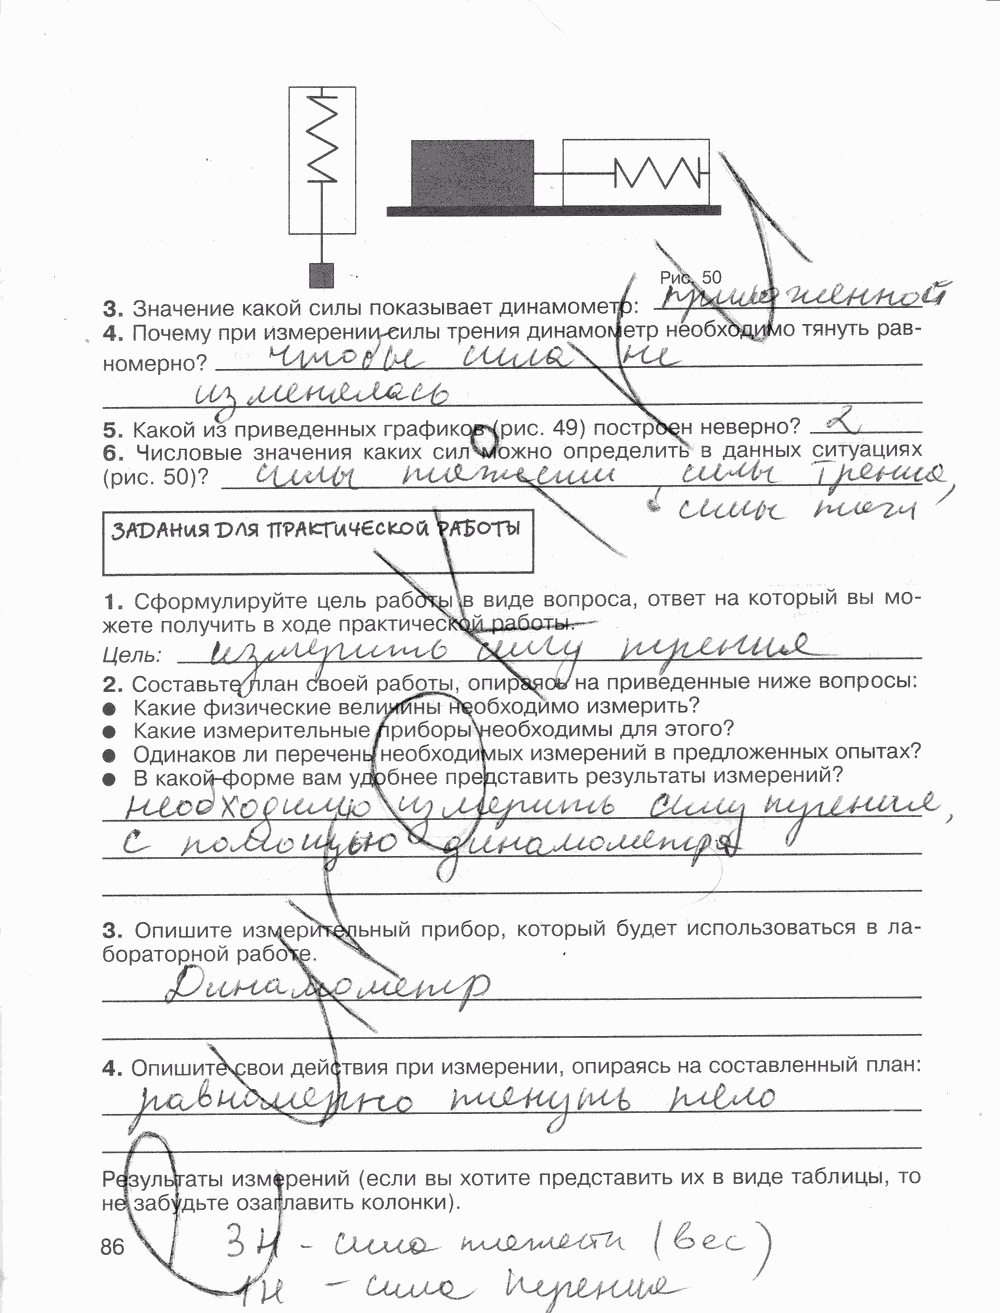 Рис. 50
3. Значение какой силы показывает динамометр: приложенной
4. Почему при измерении силы трения динамометр необходимо тянуть рав-
номерно? чтобы сила не
изменялась
5. Какой из приведенных графиков (рис. 49) построен неверно? 2
6. Числовые значения каких сил можно определить в данных ситуациях
(рис. 50)? силы тяжести силы трения,
силы тяги
ЗАДАНИЯ ДЛЯ ПРАКТИЧЕСКОЙ РАБОТЫ
1. Сформулируйте цель работы в виде вопроса, ответ на который вы мо-
жете получить в ходе практической работы.
Цель: измерить силу трения
2. Составьте план своей работы, опираясь на приведенные ниже вопросы:
● Какие физические величины необходимо измерить?
● Какие измерительные приборы необходимы для этого?
● Одинаков ли перечень необходимых измерений в предложенных опытах?
● В какой форме вам удобнее представить результаты измерений?
необходимо измерить силу трения,
с помощью динамометра
3. Опишите измерительный прибор, который будет использоваться в ла-
бораторной работе.
Динамометр
4. Опишите свои действия при измерении, опираясь на составленный план:
равномерно тянуть тело
Результаты измерений (если вы хотите представить их в виде таблицы, то
не забудьте озаглавить колонки).
86
3 Н - сила тяжести (вес)
1Н - сила трения